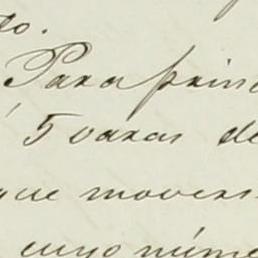 do.
Para prin
5 varas de
que movers
cuyo núme